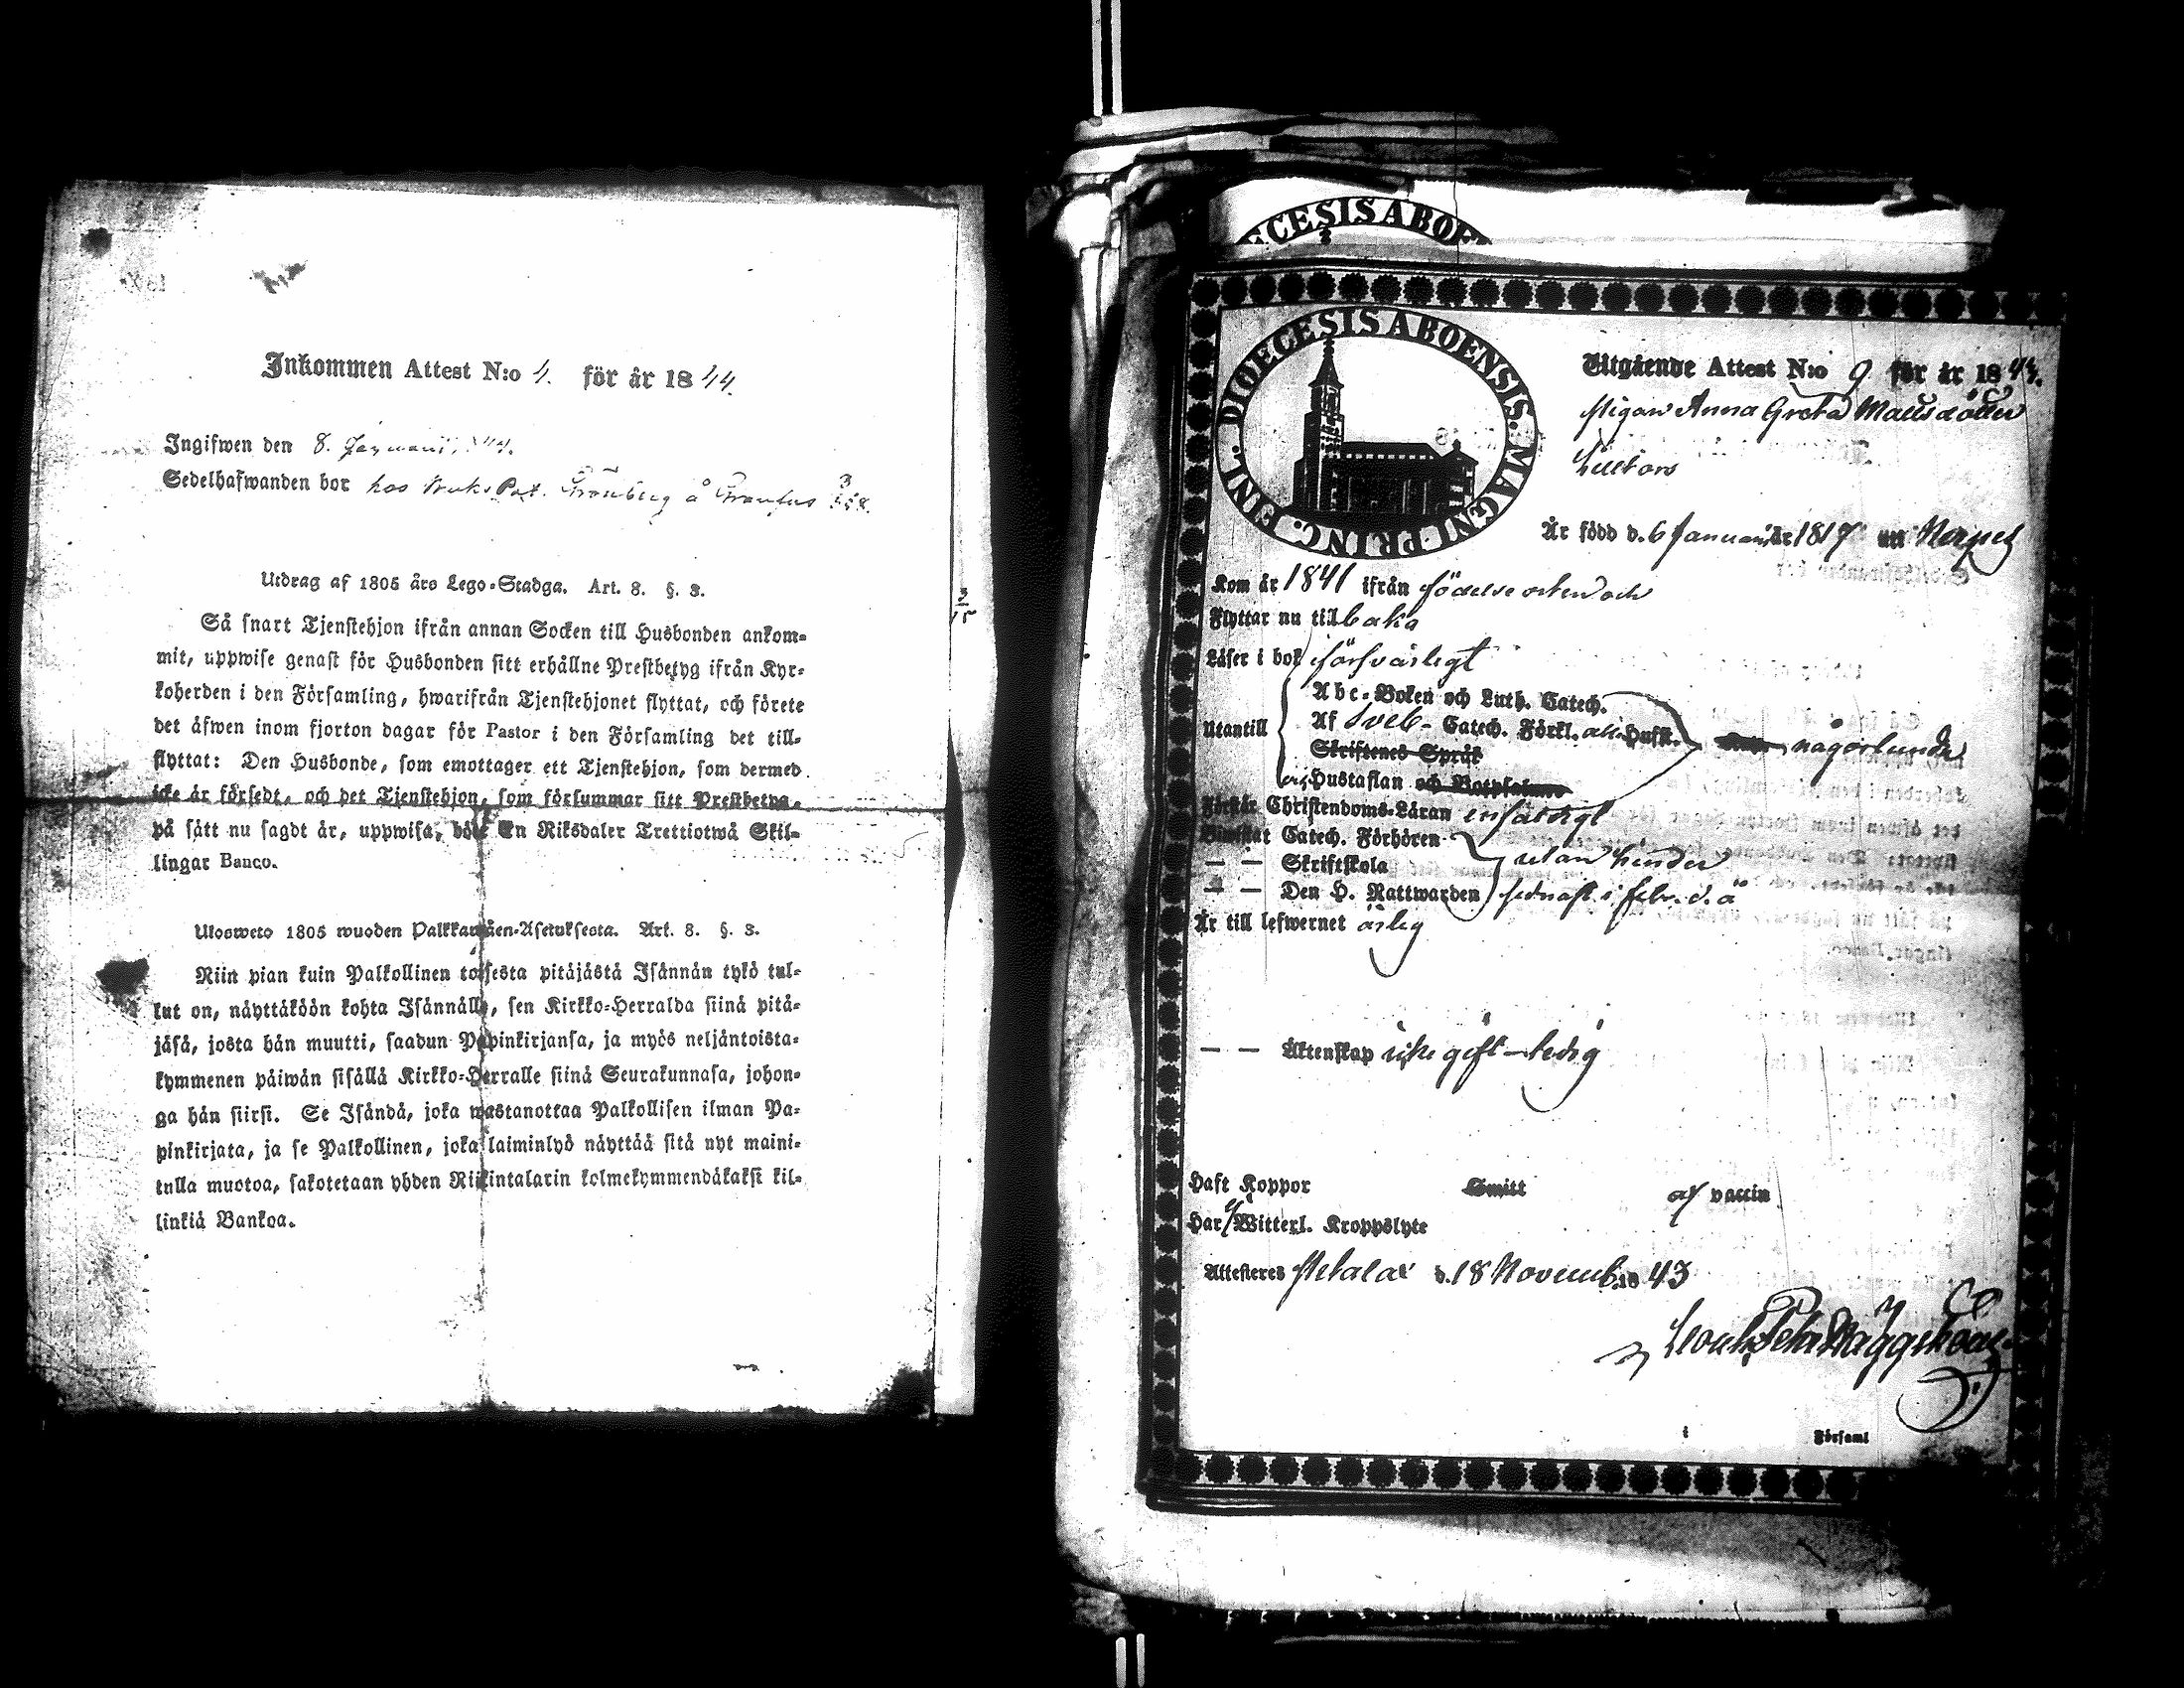 Inkommen Attest N:o 4. för år 1844.
Ingifwen den 8. Januari 1844.
Sedelhafwanden bor hos Bruks Pat. Grönberg å
Utdrag af 1805 års Lego-Stadga. Art. 8. §. 3.
Så snart Tjenstehjon ifrån annan Socken till Husbonden ankom-
mit, uppwise genast för Husbonden sitt erhållne Prestbetyg ifrån Kyr-
koherden i den Församling, hwarifrån Tjenstehjonet flyttat, och förete
det äfwen inom fjorton dagar för Pastor i den Församling det till-
flyttat: Den Husbonde, som emottager ett Tjenstehjon, som dermed
icke är försedt, och det Tjenstehjon, som försummar sitt Prestbetyg,
på sätt nu sagdt är, uppwisa, böte En Riksdaler Trettiotwå Skil-
lingar Banco.
Ulosweto 1805 wuoden Palkkawäen-Asetuksesta. Art. 8. §. 3.
Niin pian kuin Palkollinen toisesta pitäjästä Isännän tykö tul-
lut on, näyttäköön kohta Isännälle, sen Kirkko-Herralda siinä pitä-
jäsä, josta hän muutti, saadun Papinkirjansa, ja myös neljäntoista-
kymmenen päiwän sisällä Kirkko-Herralle siinä Seurakunnasa, johon-
ga hän siirsi. Se Isändä, joka wastanottaa Palkollisen ilman Pa-
pinkirjata, ja se Palkollinen, joka laiminlyö näyttää sitä nyt maini-
tulla muotoa, sakotetaan yhden Riikintalarin kolmekymmendäkaksi kil-
linkiä Bankoa.
3
15
DIOECESIS ABOENSIS
DIOECESIS ABOENSIS. MAGNI PRINC. FINL.
Utgående Attest N:o 9 för år 1843.
Pigan Anna Greta Mattsdotter
Är född d. 6 Januari år 1817 uti Nerpes
Kom år 1841 ifrån födelseorten och
Flyttar nu tillbaka
Läser i bok försvarligt
Abc-Boken och Luth. Catech.
Utantill Af Sveb- Catech. Förkl. Husst. någorlunda
Skriftenes Språk
Hustaflan och Botpsalmer
Förstår Christendoms-Läran enfaldigt
Bimistat Catech. Förhören
— — Skriftskola utan hinder
— — Den H. Nattwarden sednast i febr. d. å
Är till lefwernet ärlig
— — Äktenskap icke gift - ledig
Haft Koppor Smitt af vaccin
Har ej Witterl. Kroppslyte
Attesteres Petalax d. 18 Novemb. 1843
i Församl